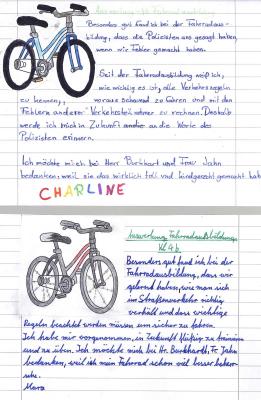 Auswertung Fahrradausbildung
Besonders gut fand ich bei der Fahrradaus-
bildung, dass die Polizisten uns gesagt haben,
wenn wir Fehler gemacht haben.
Seit der Fahrradausbildung weiß ich,
wie wichtig es ist, alle Verkehrsregeln
zu kennen, vorausschauend zu fahren und mit den
Fehlern anderer Verkehrsteilnehmer zu rechnen. Deshalb
werde ich mich in Zukunft immer an die Worte des
Polizisten erinnern.
Ich möchte mich bei Herr Burkhart und Frau Jahn
bedanken, weil sie das wirklich toll und kindgerecht gemacht hab
CHARLINE
Auswertung Fahrradausbildung
Kl. 4b
Besonders gut fand ich bei der
Fahrradausbildung, dass wir
gelernt haben, wie man sich
im Straßenverkehr richtig
verhält und dass wichtige
Regeln beachtet werden müssen um sicher zu fahren.
Ich habe mir vorgenommen, in Zukunft fleißig zu trainieren
und zu üben. Ich möchte mich bei Hr. Burkhardt, Fr. Jahn
bedanken, weil ich mein Fahrrad schon viel besser beherr-
sche.
Mara